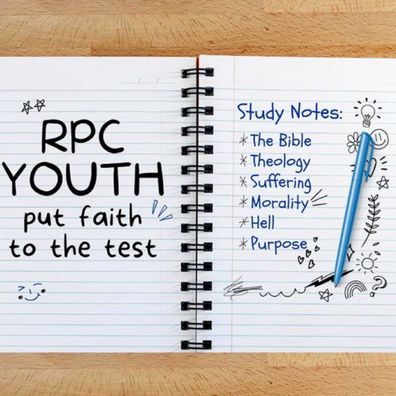 RPC
YOUTH
put faith
to the test
Study Notes:
* The Bible
* Theology
* Suffering
* Morality
* Hell
* Purpose